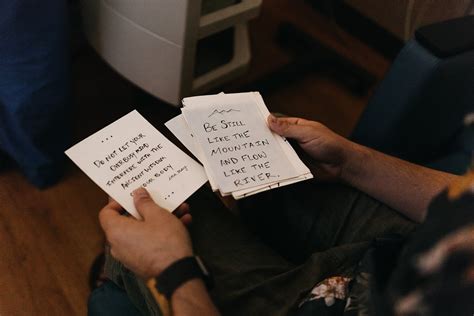 DO NOT LET YOUR
OVERBUSY MIND
INTERFERE WITH THE
ANCIENT WISDOM
BODY
BE STILL
LIKE THE
MOUNTAIN
AND FLOW
LIKE THE
RIVER.